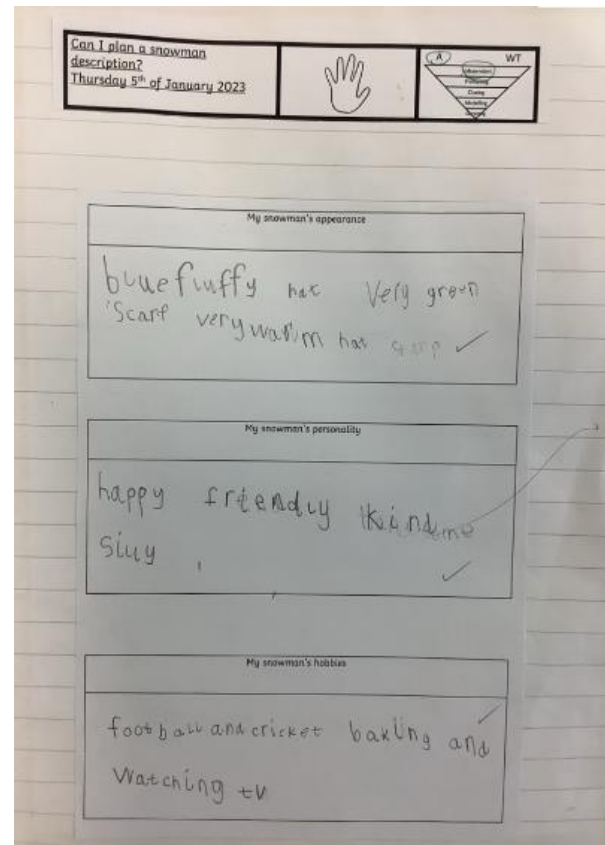 Can I plan a snowman
description?
Thursday 5th of January 2023
A
WT
Modelling
My snowman's appearance
blue fluffy hat very green
scarf very warm hat
My snowman's personality
happy friendly kind
silly
My snowman's hobbies
football and cricket baking and
watching tv